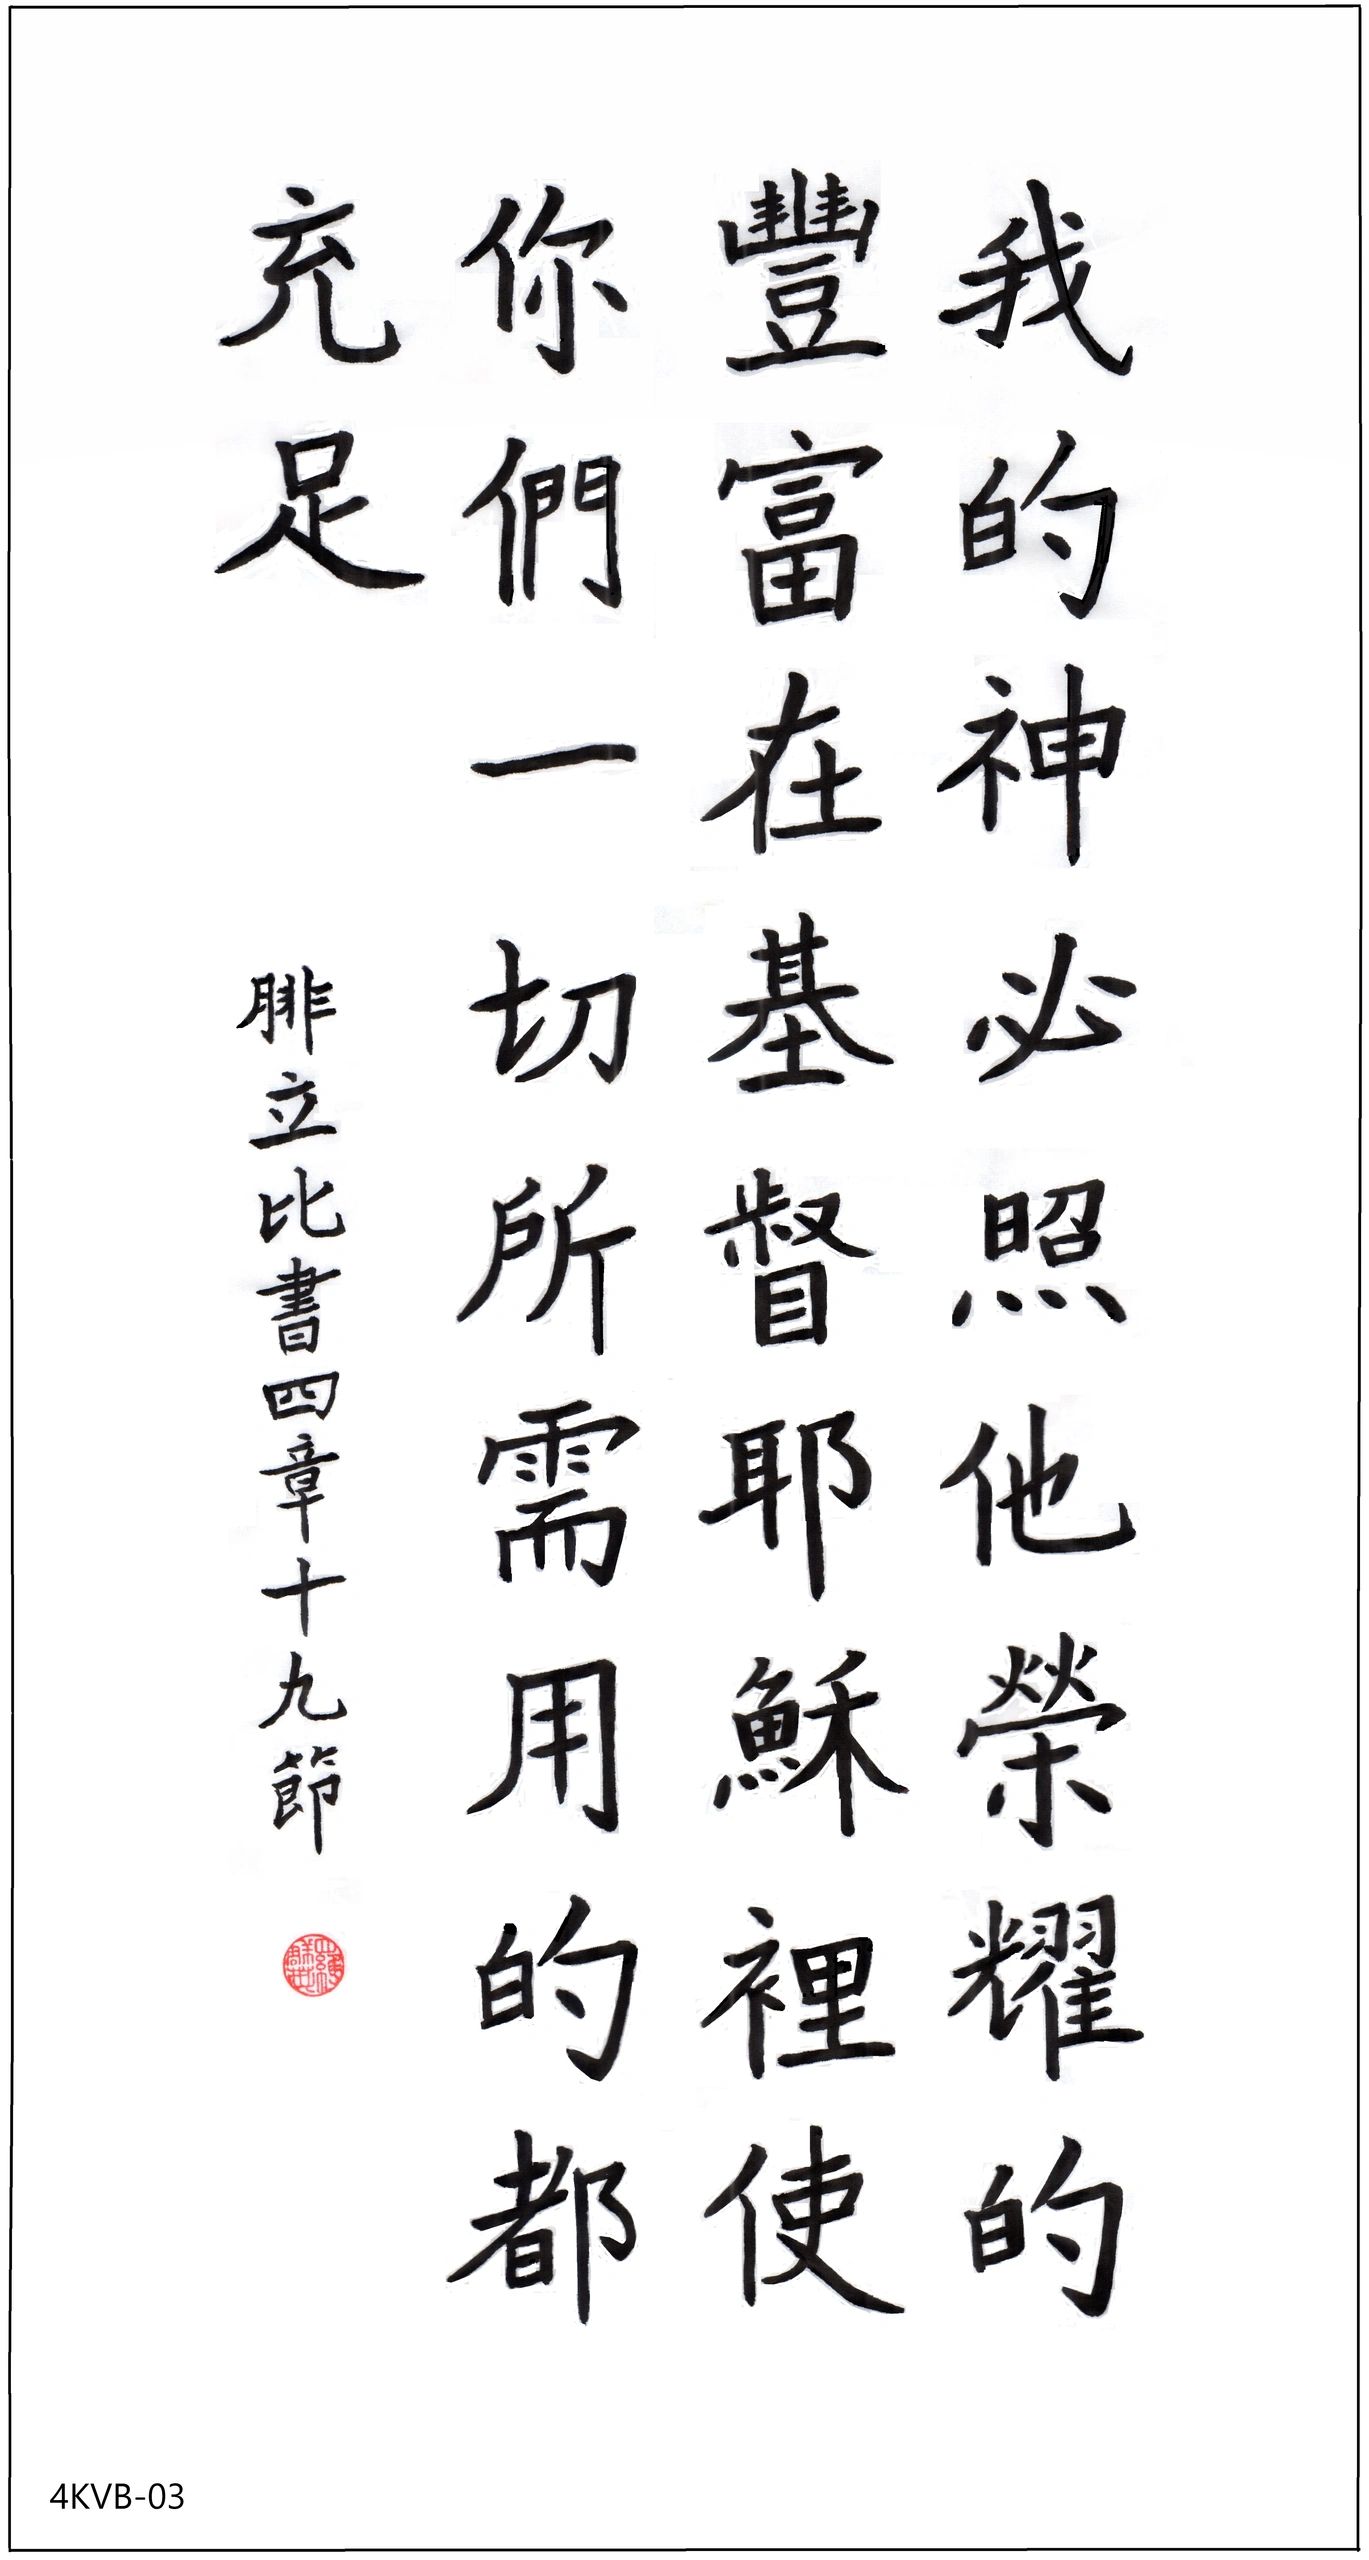 我的神必照他榮耀的
豐富在基督耶穌裡使
你們一切所需用的都
充足
腓立比書四章十九節
4KVB-03